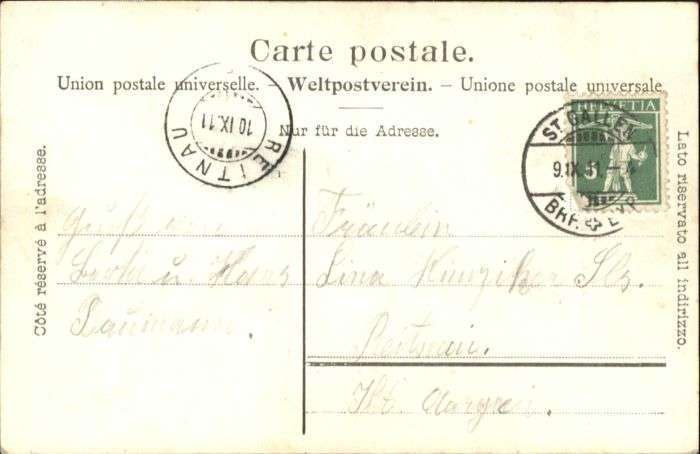 Carte postale.
Union postale universelle. – Weltpostverein. – Unione postale universale
Nur für die Adresse.
Côté réservé à l'adresse.
Lato riservato all indirizzo.
REITNAU
10.IX.11
HELVETIA
5
ST. GALLEN
9.IX.11
BRF.
Fräulein
Lina Hunziker
Reitnau.
Kt. Aargau.
u. Hans
Baumann.